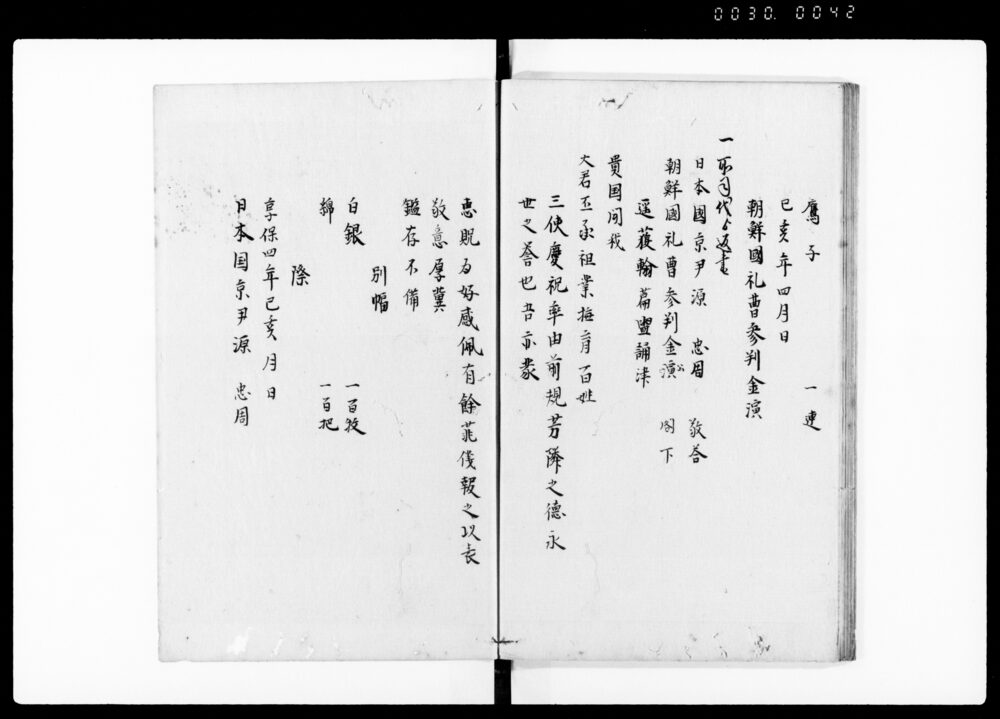 0030. 0042
鷹子 一連
己亥年四月日
朝鮮國礼曹参判金演
一 所司代ゟ返書
日本國京尹源 忠周 敬答
朝鮮國礼曹参判金演公 閤下
遥蒦翰篇盥誦
貴国同我
大君丕承祖業撫育百姓
三使慶祝率由前規芳隣之德永
世之誉也吾亦蒙
惠貺為好感佩有餘菲儀報之以表
敬意厚冀
鑑存不備
別幅
白銀 一百枚
綿 一百把
際
享保四年己亥 月日
日本国京尹源 忠周